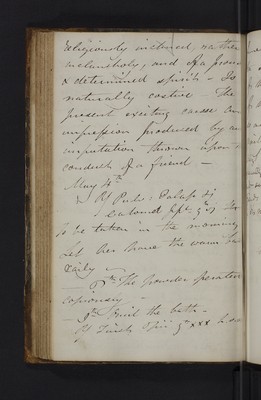 religiously inclined, rather
melancholy, and of a proud
& determined spirit. Is
naturally costive. The
present exciting cause an
impression produced by an
imputation thrown upon
conduct of a friend —
May 4th
Pulv: Jalap
Calomel
to be taken in the morning
Let her have the warm
daily
The powder operated
copiously —
Omit the bath.
xxx